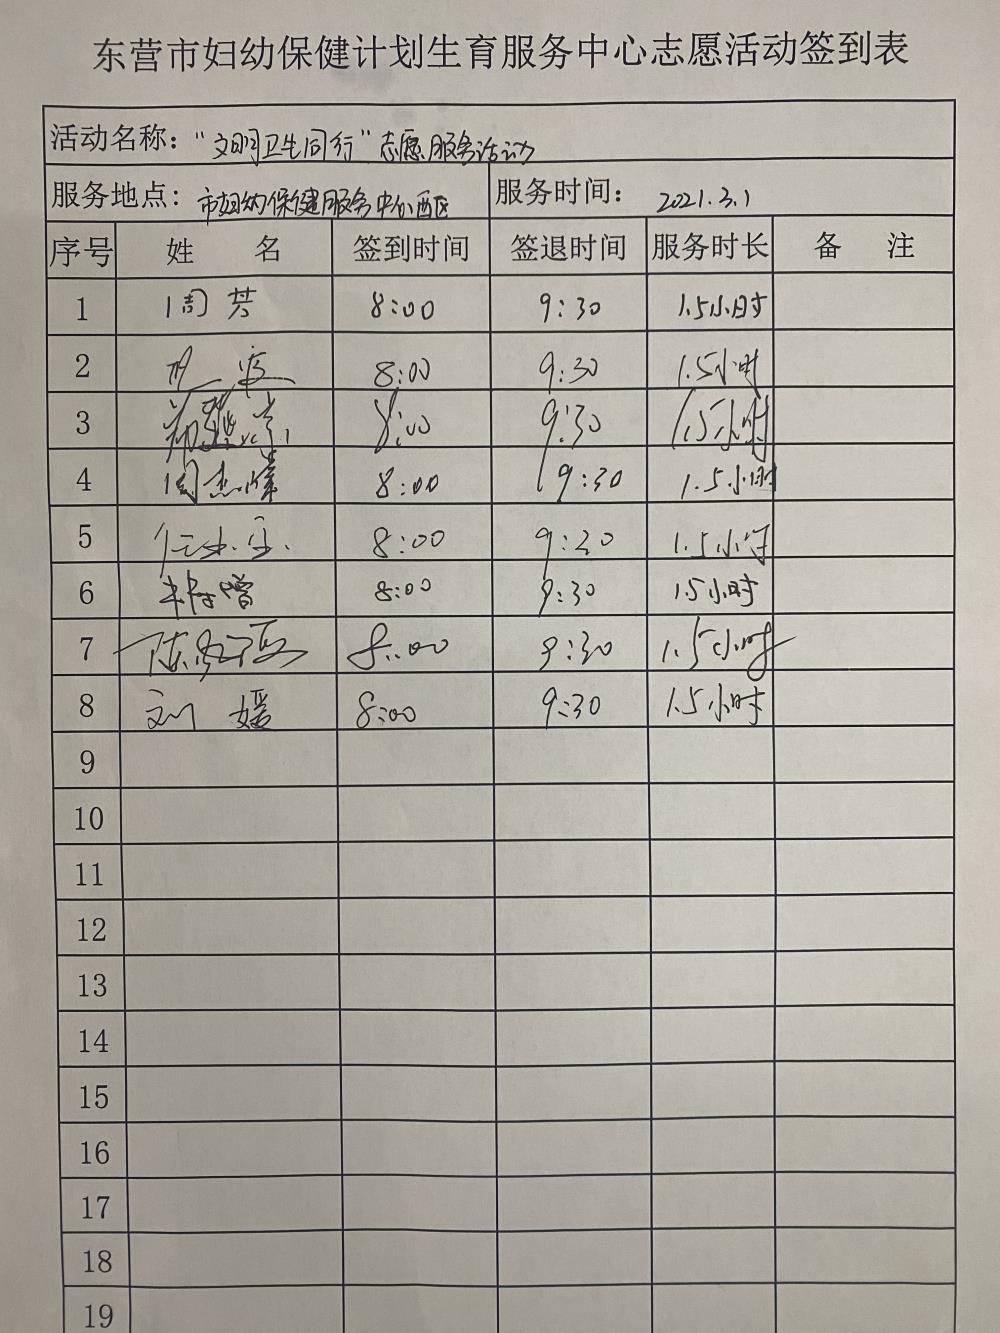 东营市妇幼保健计划生育服务中心志愿活动签到表
活动名称：“文明卫生同行”志愿服务活动
服务地点：市妇幼保健服务中心西区 服务时间：2021.3.1
序号 姓 名 签到时间 签退时间 服务时长 备 注
1 周芸 8:00 9:30 1.5小时
2 8:00 9:30 1.5小时
3 8:00 9:30 1.5小时
4 周杰 8:00 9:30 1.5小时
5 8:00 9:30 1.5小时
6 8:00 9:30 1.5小时
7 陈 8:00 9:30 1.5小时
8 刘媛 8:00 9:30 1.5小时
9
10
11
12
13
14
15
16
17
18
19